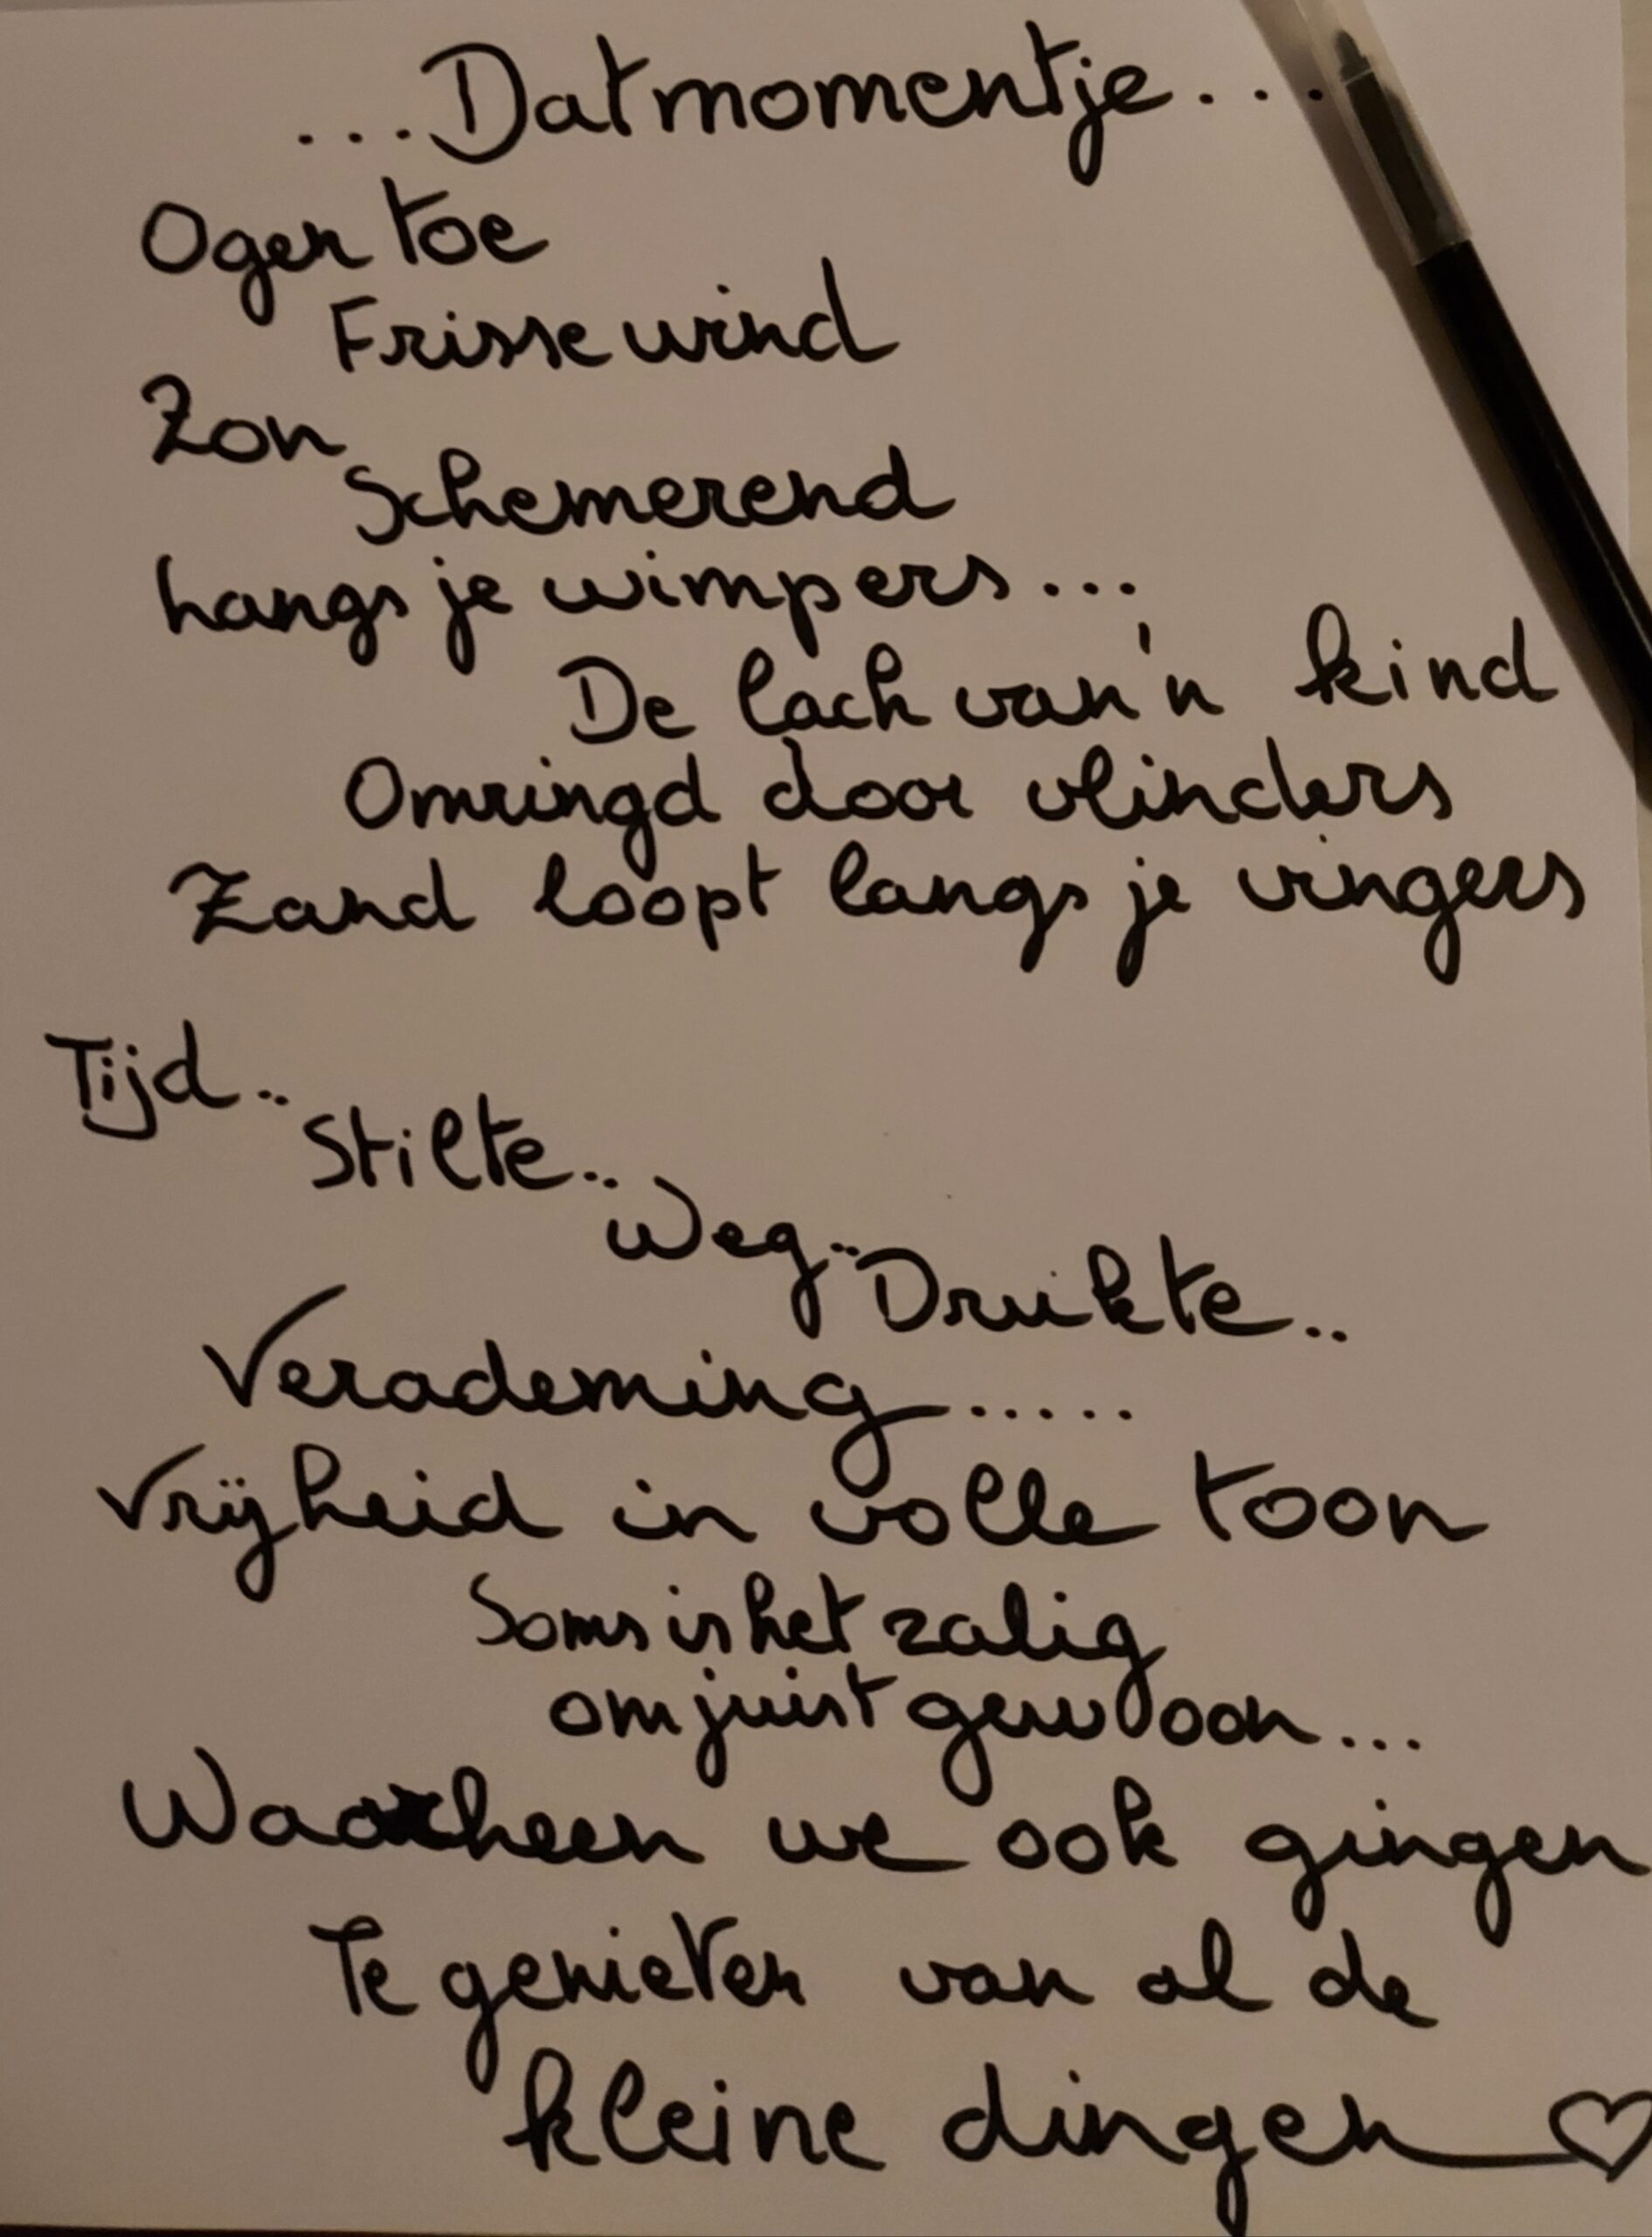 ...Dat momentje...
Ogen toe
Frisse wind
Zon
Schemerend
langs je wimpers...
De lach van 'n kind
Omringd door vlinders
Zand loopt langs je vingers
Tijd..
Stilte..
Weg..
Drukte..
Verademing.....
Vrijheid in volle toon
Soms is het zalig
om juist gewoon...
Waarheen we ook gingen
Te genieten van al de
kleine dingen